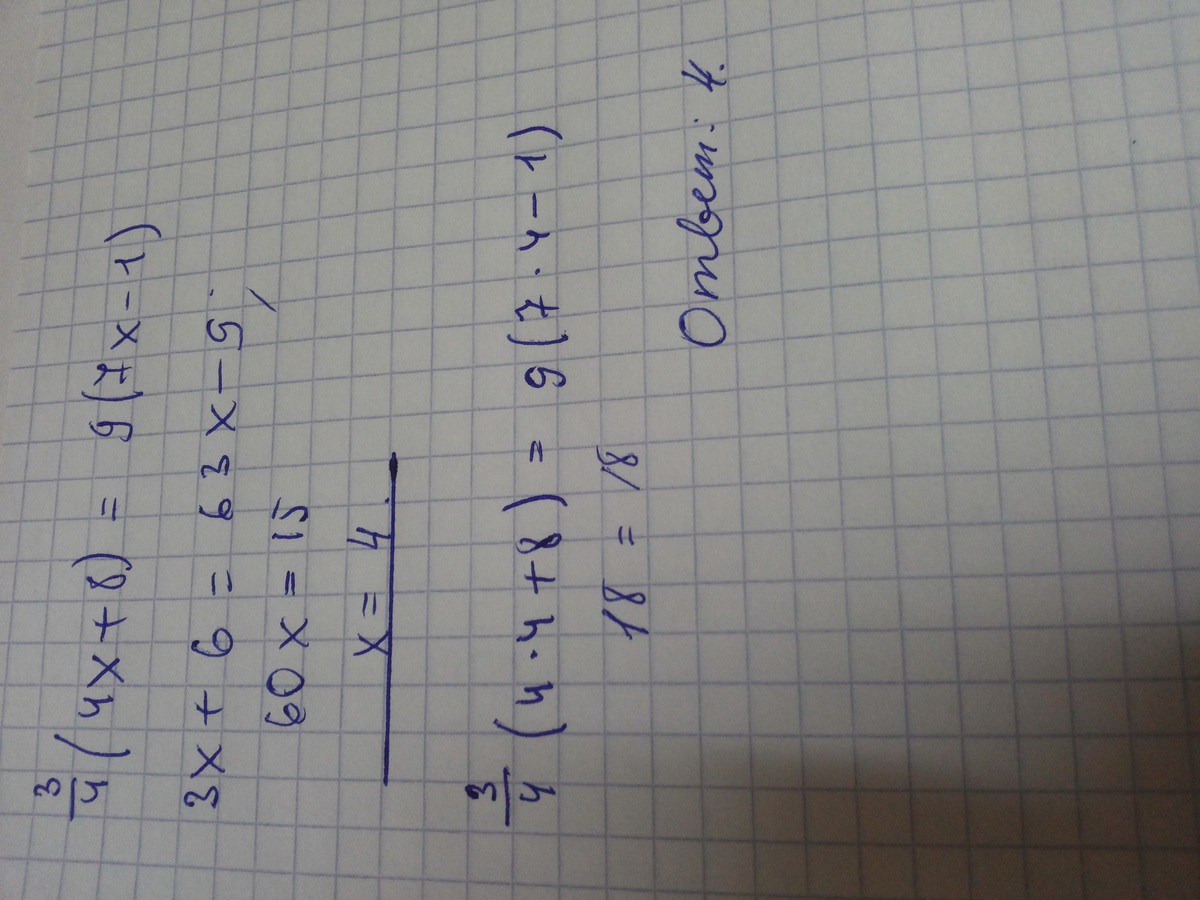 3/4 (4x + 8) = 9(7x - 1)
3x + 6 = 63x - 9;
60x = 15
x = 4.
3/4 (4 · 4 + 8) = 9(7 · 4 - 1)
18 = 18
Ответ: 4.